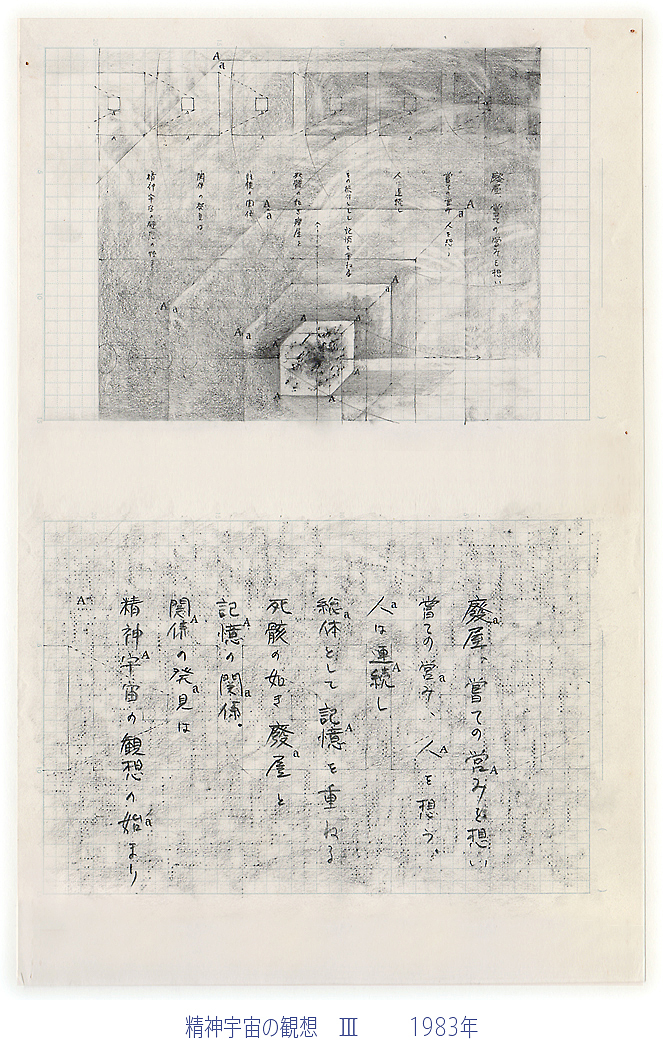 廢屋 嘗ての営みを想い
嘗ての営み 人を想う
人は連続し
総体として記憶を重ねる
死骸の如き廢屋と
記憶の関係
関係の発見は
精神宇宙の観想の始まり
廢屋、嘗ての営みを想い
嘗ての営み、人を想う、
人は連続し
総体として記憶を重ねる
死骸の如き廢屋と
記憶の関係。
関係の発見は
精神宇宙の観想の始まり
精神宇宙の観想 Ⅲ 1983年